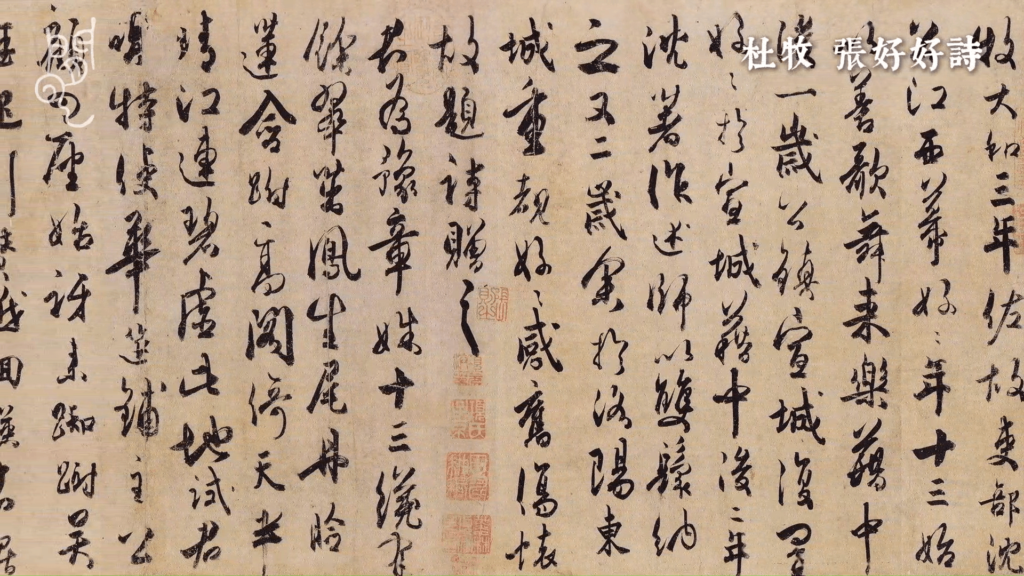 杜牧 張好好詩
牧大和三年佐故吏部沈
公江西幕好〻年十三始
以善歌舞来樂籍中
後一歲公鎮宣城復置
好〻於宣城籍中後二年
沈著作述師以雙鬟納
之又二歲余於洛陽東
城重覩好〻感舊傷懷
故題詩贈之
君為豫章姝十三纔有
餘翠茁鳳生尾丹臉
蓮含跗高閣倚天半
晴江連碧虛此地試君
唱特使華筵鋪主公
顧四座始訝来踟跗吳
娃起引